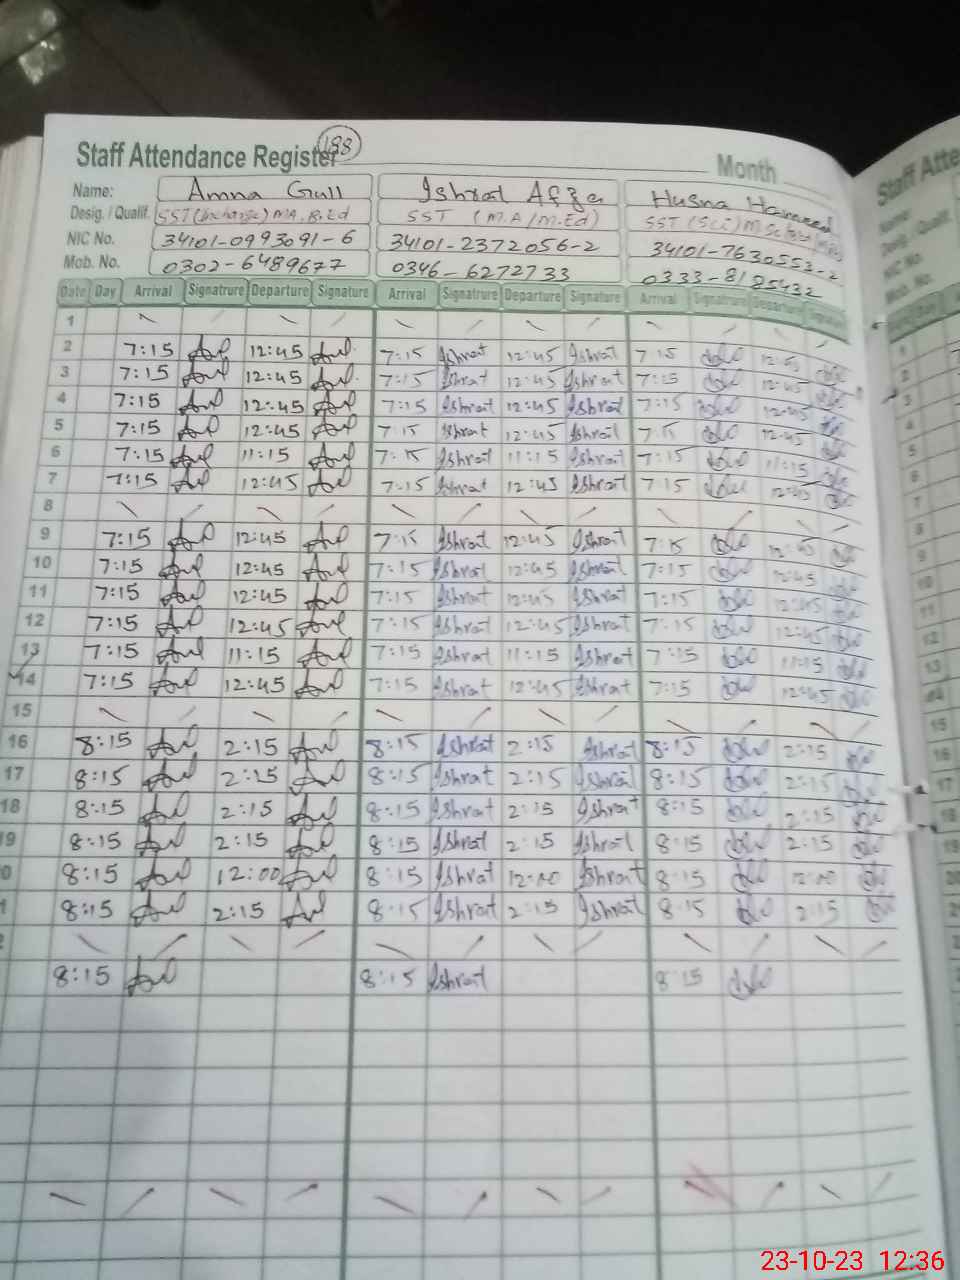 188
Staff Attendance Register Month
Name: Amna Gull Ishrat Afza Husna Hameed
Desig. / Qualif. SST (Incharge) MA, B.Ed SST (M.A / M.Ed) SST (Sci)
NIC No. 34101-0993091-6 34101-2372056-2 34101-7630553-2
Mob. No. 0302-6489677 0346-6272733 0333-8125432
Date Day Arrival Signatrure Departure Signature Arrival Signatrure Departure Signature Arrival Signatrure Departure Signature
1
2 7:15 12:45 7:15 Ishrat 12:45 Ishrat 7:15 12:45
3 7:15 12:45 7:15 Ishrat 12:45 Ishrat 7:15 12:45
4 7:15 12:45 7:15 Ishrat 12:45 Ishrat 7:15 12:45
5 7:15 12:45 7:15 Ishrat 12:45 Ishrat 7:15 12:45
6 7:15 11:15 7:15 Ishrat 11:15 Ishrat 7:15 11:15
7 7:15 12:45 7:15 Ishrat 12:45 Ishrat 7:15 12:45
8
9 7:15 12:45 7:15 Ishrat 12:45 Ishrat 7:15 12:45
10 7:15 12:45 7:15 Ishrat 12:45 Ishrat 7:15 12:45
11 7:15 12:45 7:15 Ishrat 12:45 Ishrat 7:15 12:45
12 7:15 12:45 7:15 Ishrat 12:45 Ishrat 7:15 12:45
13 7:15 11:15 7:15 Ishrat 11:15 Ishrat 7:15 11:15
14 7:15 12:45 7:15 Ishrat 12:45 Ishrat 7:15 12:45
15
16 8:15 2:15 8:15 Ishrat 2:15 Ishrat 8:15 2:15
17 8:15 2:15 8:15 Ishrat 2:15 Ishrat 8:15 2:15
18 8:15 2:15 8:15 Ishrat 2:15 Ishrat 8:15 2:15
19 8:15 2:15 8:15 Ishrat 2:15 Ishrat 8:15 2:15
0 8:15 12:00 8:15 Ishrat 12:00 Ishrat 8:15 12:00
1 8:15 2:15 8:15 Ishrat 2:15 Ishrat 8:15 2:15
2
8:15 8:15 Ishrat 8:15
23-10-23 12:36